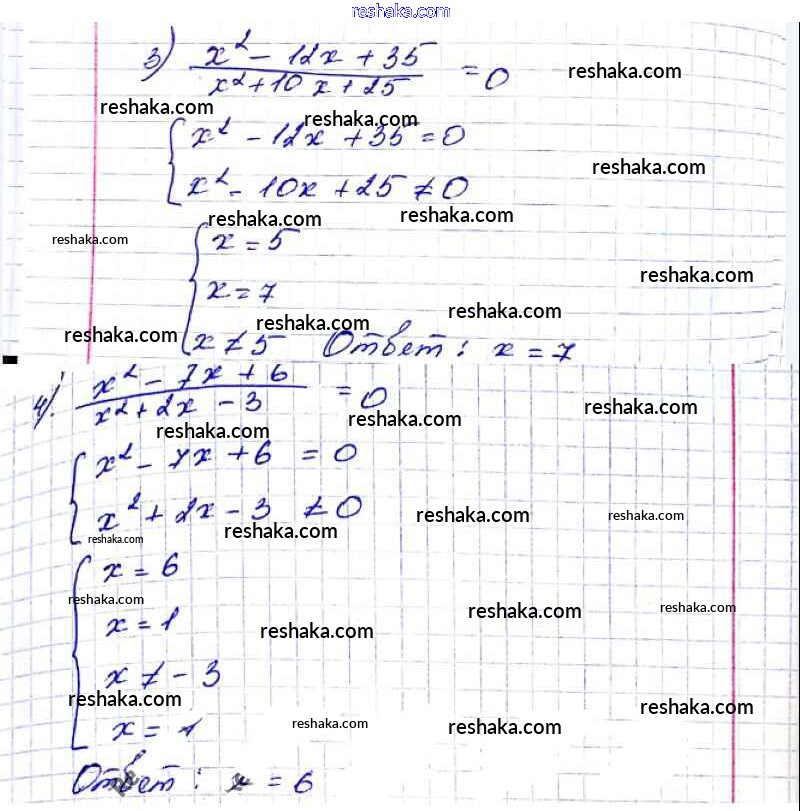 reshaka.com
3) x² - 12x + 35 / x² + 10x + 25 = 0
reshaka.com
reshaka.com
reshaka.com
{ x² - 12x + 35 = 0
reshaka.com
x² - 10x + 25 ≠ 0
reshaka.com
reshaka.com
reshaka.com
{ x = 5
reshaka.com
x = 7
reshaka.com
reshaka.com
reshaka.com
x ≠ 5 Ответ: x = 7
4) x² - 7x + 6 / x² + 2x - 3 = 0
reshaka.com
reshaka.com
{ x² - 7x + 6 = 0
x² + 2x - 3 ≠ 0
reshaka.com
reshaka.com
reshaka.com
reshaka.com
{ x = 6
reshaka.com
reshaka.com
reshaka.com
x = 1
reshaka.com
x ≠ -3
reshaka.com
reshaka.com
x = 1
reshaka.com
reshaka.com
Ответ: x = 6